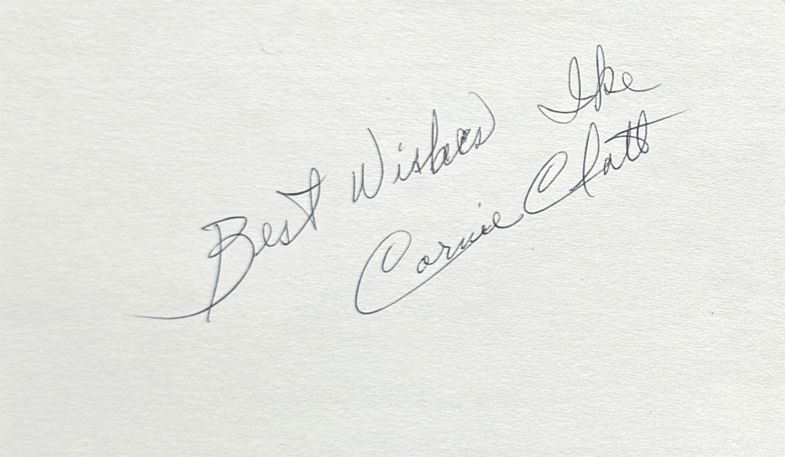 Best Wishes Ike
Cornie Clatt